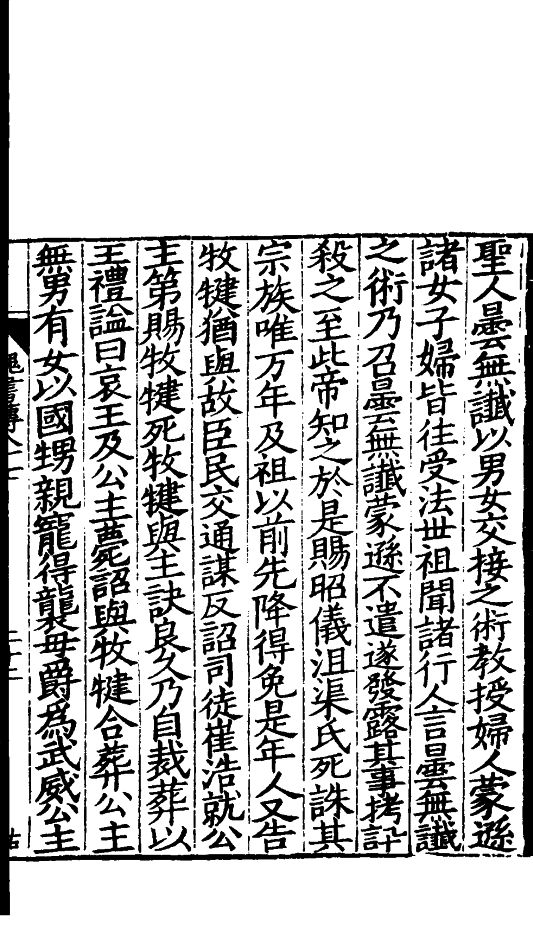 聖人曇無讖以男女交接之術教授婦人蒙遜
諸女子婦皆往受法世祖聞諸行人言曇無讖
之術乃召曇無讖蒙遜不遣遂發露其事拷訊
殺之至此帝知之於是賜昭儀沮渠氏死誅其
宗族唯万年及祖以前先降得免是年人又告
牧犍猶與故臣民交通謀反詔司徒崔浩就公
主第賜牧犍死牧犍與主訣良久乃自裁葬以
王禮諡曰哀王及公主薨詔與牧犍合葬公主
無男有女以國甥親寵得襲母爵爲武威公主
魏書傳八十七